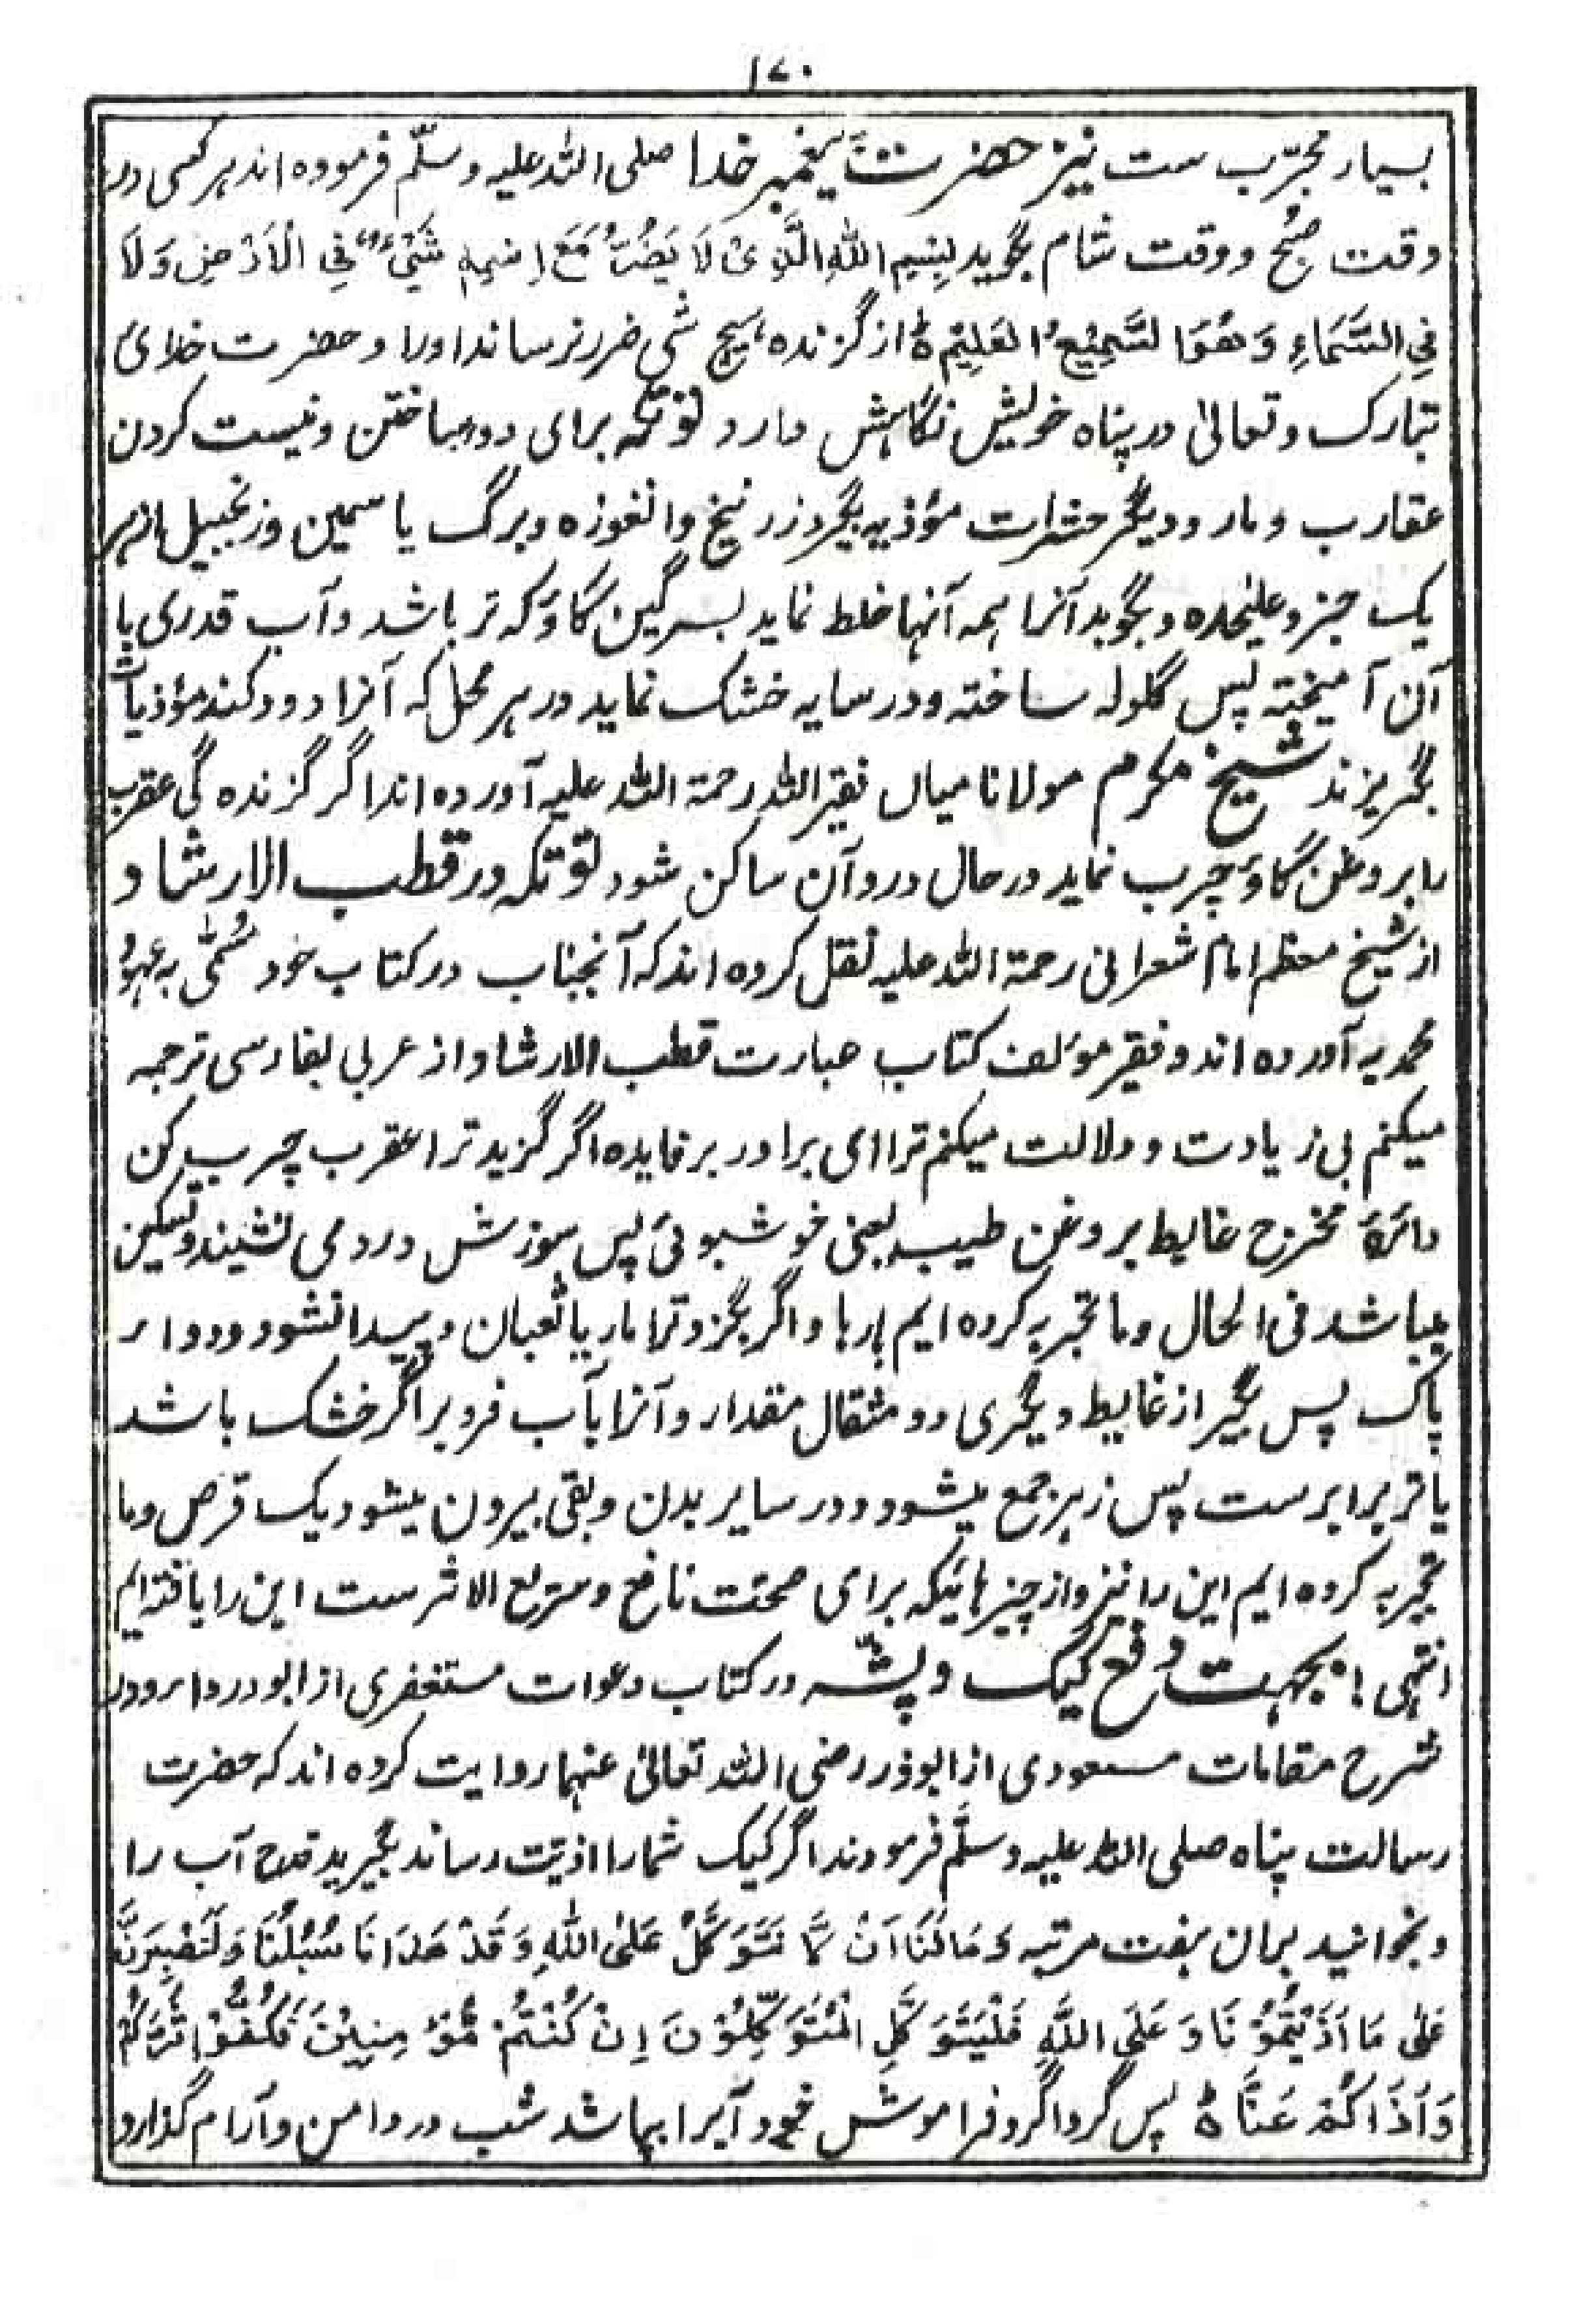 ۱۷۰
بسیار مجرّب ست نیز حضرت پیغمبر خدا صلی الله علیه وسلّم فرموده اند هر کسی در
وقت صبُح ووقت شام بگوید بِسْمِ اللهِ الَّذِیْ لَا یَضُرُّ مَعَ اِسْمِهٖ شَیْءٌ فِی الْاَرْضِ وَلَا
فِی السَّمَاءِ وَهُوَ السَّمِیْعُ العَلِیْم ؕ از گزنده هیچ شی ضرر نرساند اورا و حضرت خدای
تبارک وتعالیٰ در پناه خویش نگاهش دارد نوتکه برای دور ساختن ونیست کردن
عقارب ومار ودیگر حشرات مؤذیه بگیرد زرنیخ وانغوزه وبرگ یاسمین وزنجبیل از هر
یک جزو علیٰحده وبکوبد آنرا همه آنها خلط نماید بسرگین گاؤ که تر باشد وآب قدری با
آن آمیخته پس گلوله ساخته ودر سایه خشک نماید در هر محل که آنرا دود کند مؤذیات
بگریزند شیخ مکرم مولانا میاں فقیر الله رحمة الله علیه آورده اند اگر گزنده گی عقرب
را بروغن گاؤ چرب نماید در حال درد آن ساکن شود نوتکه در قطب الارشاد
از شیخ معظم امام شعرانی رحمة الله علیه نقل کرده اند که آنجناب در کتاب خود مُسَمّٰی به عهودُ
محمدیه آورده اند وفقیر مؤلف کتاب عبارت قطب الارشاد از عربی بفارسی ترجمه
میکنم بی زیادت ودلالت میکنم ترا ای برادر بر فایده اگر گزید ترا عقرب چرب کن
دائرهٔ مخرج غایط بروغن طیب یعنی خوشبوئی پس سوزش درد می نشیند وتسکین
میباشد فی الحال وما تجربه کرده ایم بارها واگر بگزد ترا مار یا ثعبان و پیدا نشود دوا ر
پاک پس بگیر از غایط دیگری دو مثقال مقدار وآنرا بآب فرو بر اگر خشک باشد
یا تر برابر ست پس زهر جمع میشود ودر سایر بدن وبقی بیرون میشود یک قرص وما
تجربه کرده ایم این را نیز واز چیزهائیکه برای صحّت نافع وسریع الاثر ست این را یافته ایم
انتهی !ه بجهت دفع کیک وپشّه در کتاب دعوات مستغفری از ابودرداء ودر
شرح مقامات مسعودی از ابوذر رضی الله تعالیٰ عنهما روایت کرده اند که حضرت
رسالت پناه صلی الله علیه وسلَّم فرمودند اگر کیک شما را اذیّت رساند بگیرید قدح آب را
وبخوانید بران هفت مرتبه وَمَا لَنَا اَنْ لَّا نَتَوَکَّلَ عَلَی اللهِ وَقَدْ هَدَانَا سُبُلَنَا وَلَنَصْبِرَنَّ
عَلٰی مَا اٰذَیْتُمُوْنَا وَعَلَی اللّٰهِ فَلْیَتَوَکَّلِ الْمُتَوَکِّلُوْنَ اِنْ کُنْتُمْ مُّؤْمِنِیْنَ فَکُفُّوْا شَرَّکُمْ
وَاَذَاکُمْ عَنَّا ؕ پس گرداگرد فراموش خود آنرا بپاشد شب در و امن وآرام گذارد